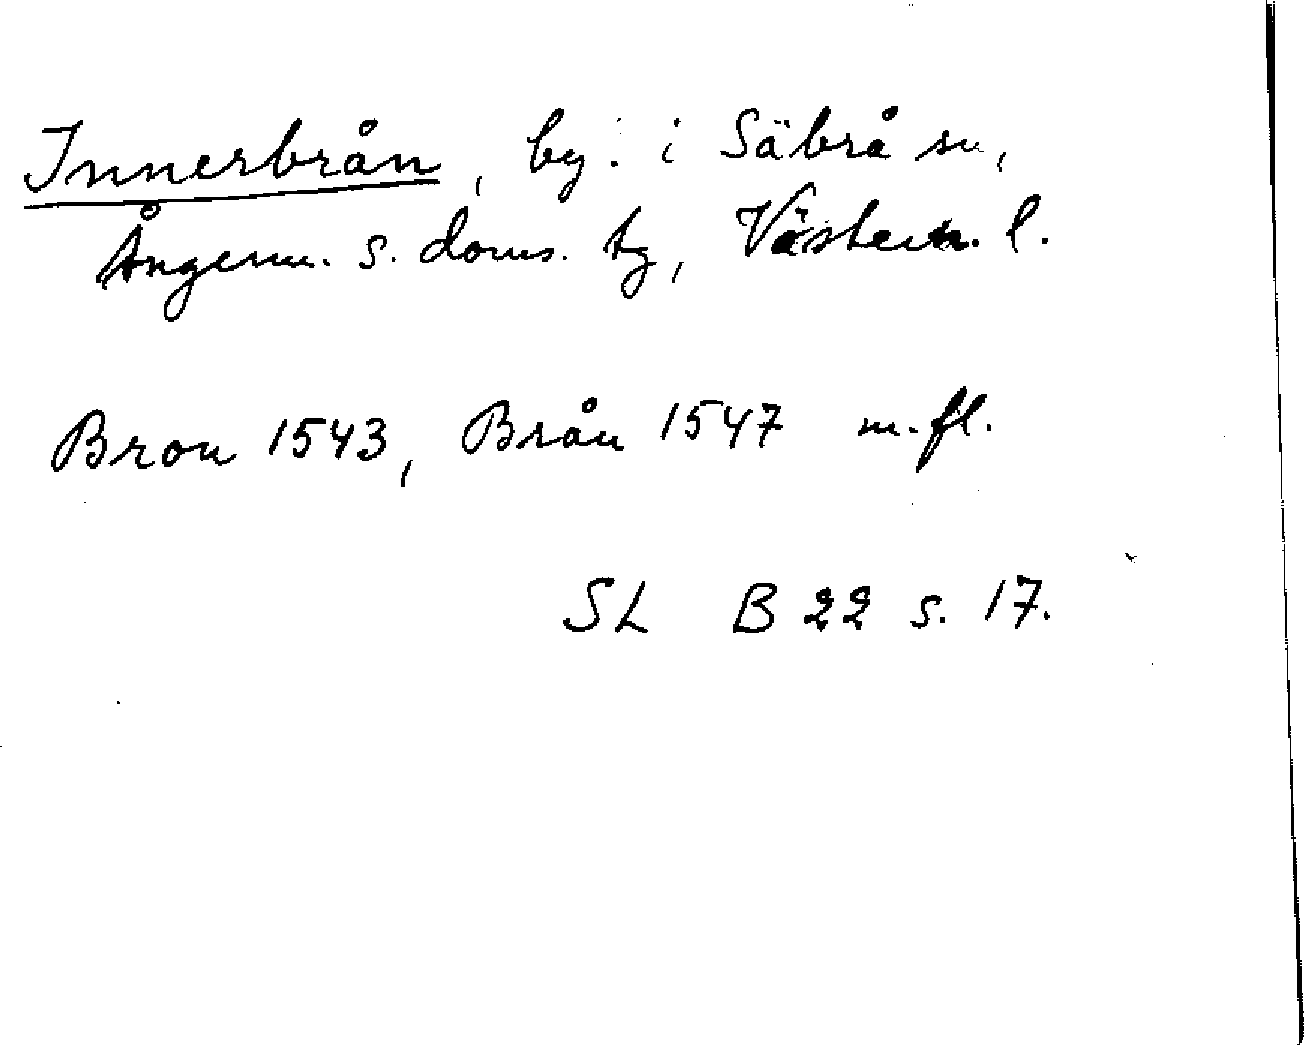 Innerbrån, by i Säbrå sn,
Ångerm. s. doms. tg, Västern. l.
Bron 1543, Brån 1547 m.fl.
SL B 22 s. 17.